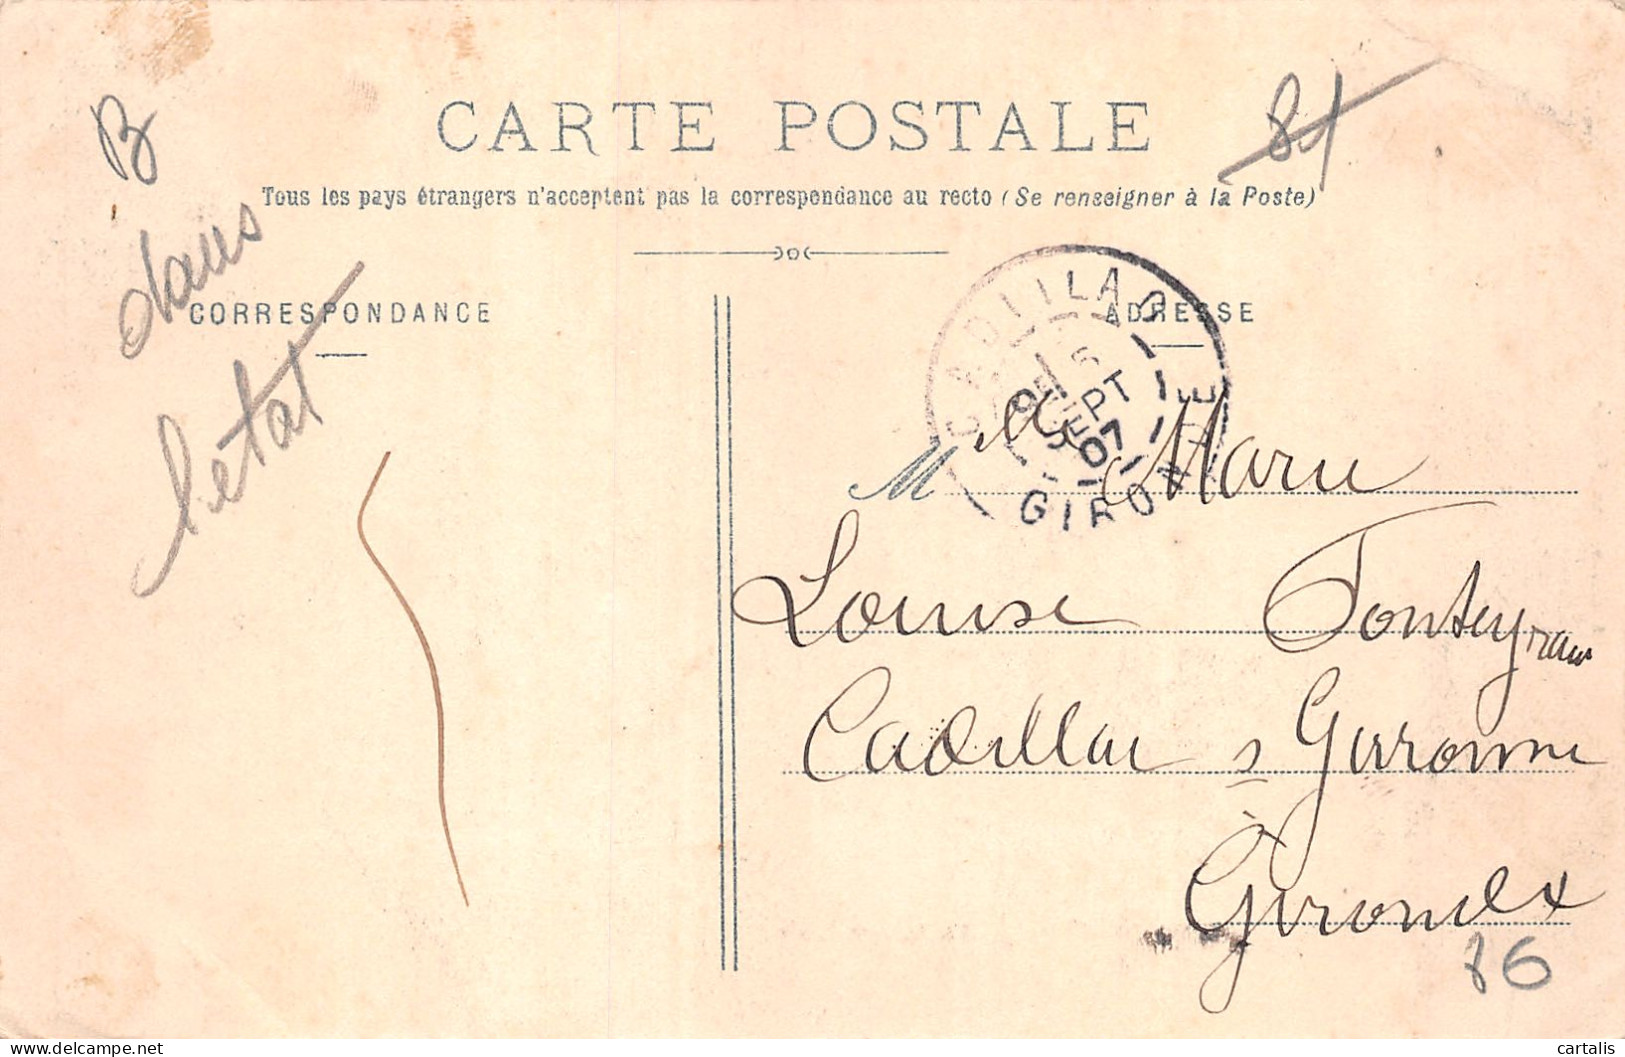 B
81
CARTE POSTALE
Tous les pays étrangers n'acceptent pas la correspondance au recto (Se renseigner à la Poste)
dans
l'etat
CORRESPONDANCE
ADRESSE
CADILLAC
5
SEPT
07
GIRONDE
M Marie
Louise Fonteyraud
Cadillac s Garonne
Gironde
86
www.delcampe.net
cartalis